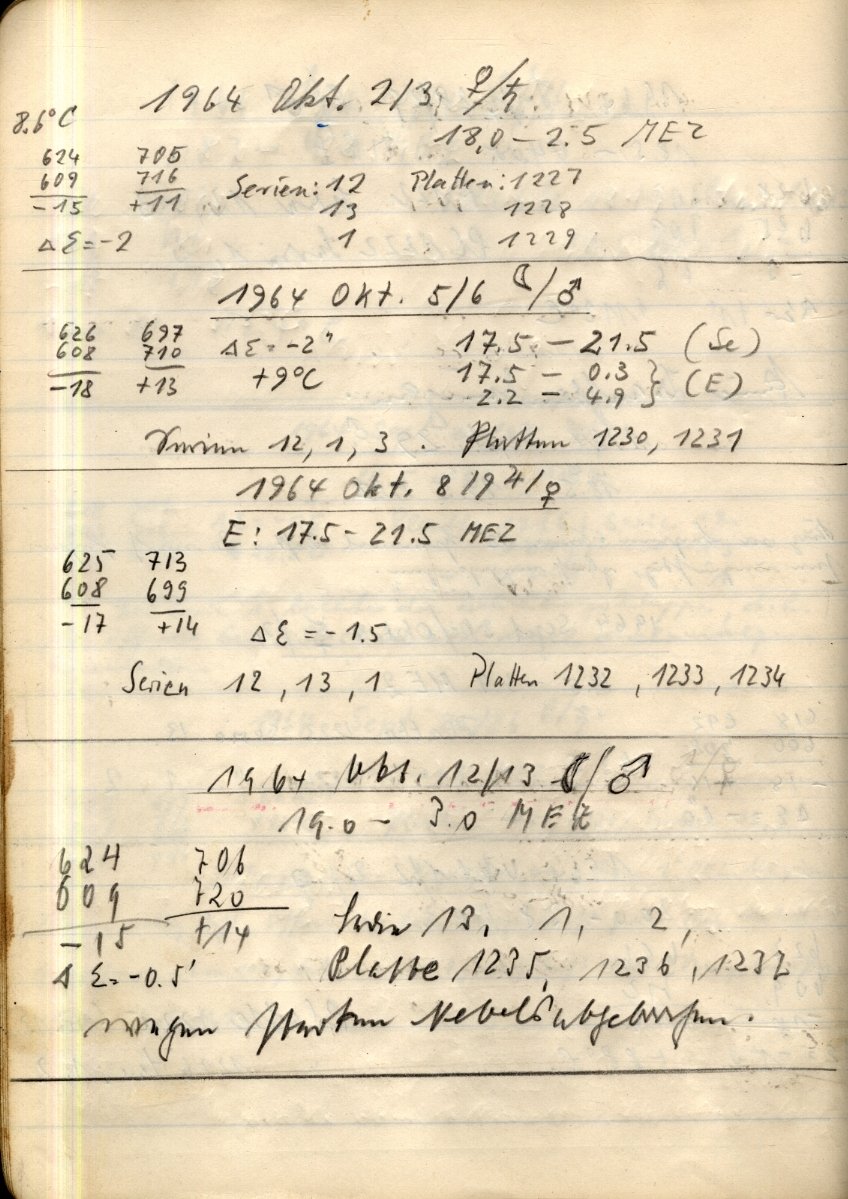 1964 Okt. 2/3 ♀/♄
8.6°C
18,0 – 2.5 MEZ
624 705
609 716 Serien: 12 Platten: 1227
-15 +11 13 1228
Δ Ɛ = -2 1 1229
1964 Okt. 5/6 ☾/♂
626 697 Δ Ɛ = -2" 17.5 – 21.5 (Se)
608 710 +9°C 17.5 – 0.3 } (E)
-18 +13 2.2 – 4.9 }
Serien 12, 1, 3. Platten 1230, 1231
1964 Okt. 8/9 ♃/♀
E: 17.5 – 21.5 MEZ
625 713
608 699
-17 +14 Δ Ɛ = -1.5
Serien 12, 13, 1 Platten 1232, 1233, 1234
1964 Okt. 12/13 ☾/♂
19.0 – 3.0 MEZ
624 706
609 720
-15 +14 Serie 13, 1, 2,
Δ Ɛ = -0.5' Platte 1235, 1236, 1237
wegen starken Nebels abgebrochen.